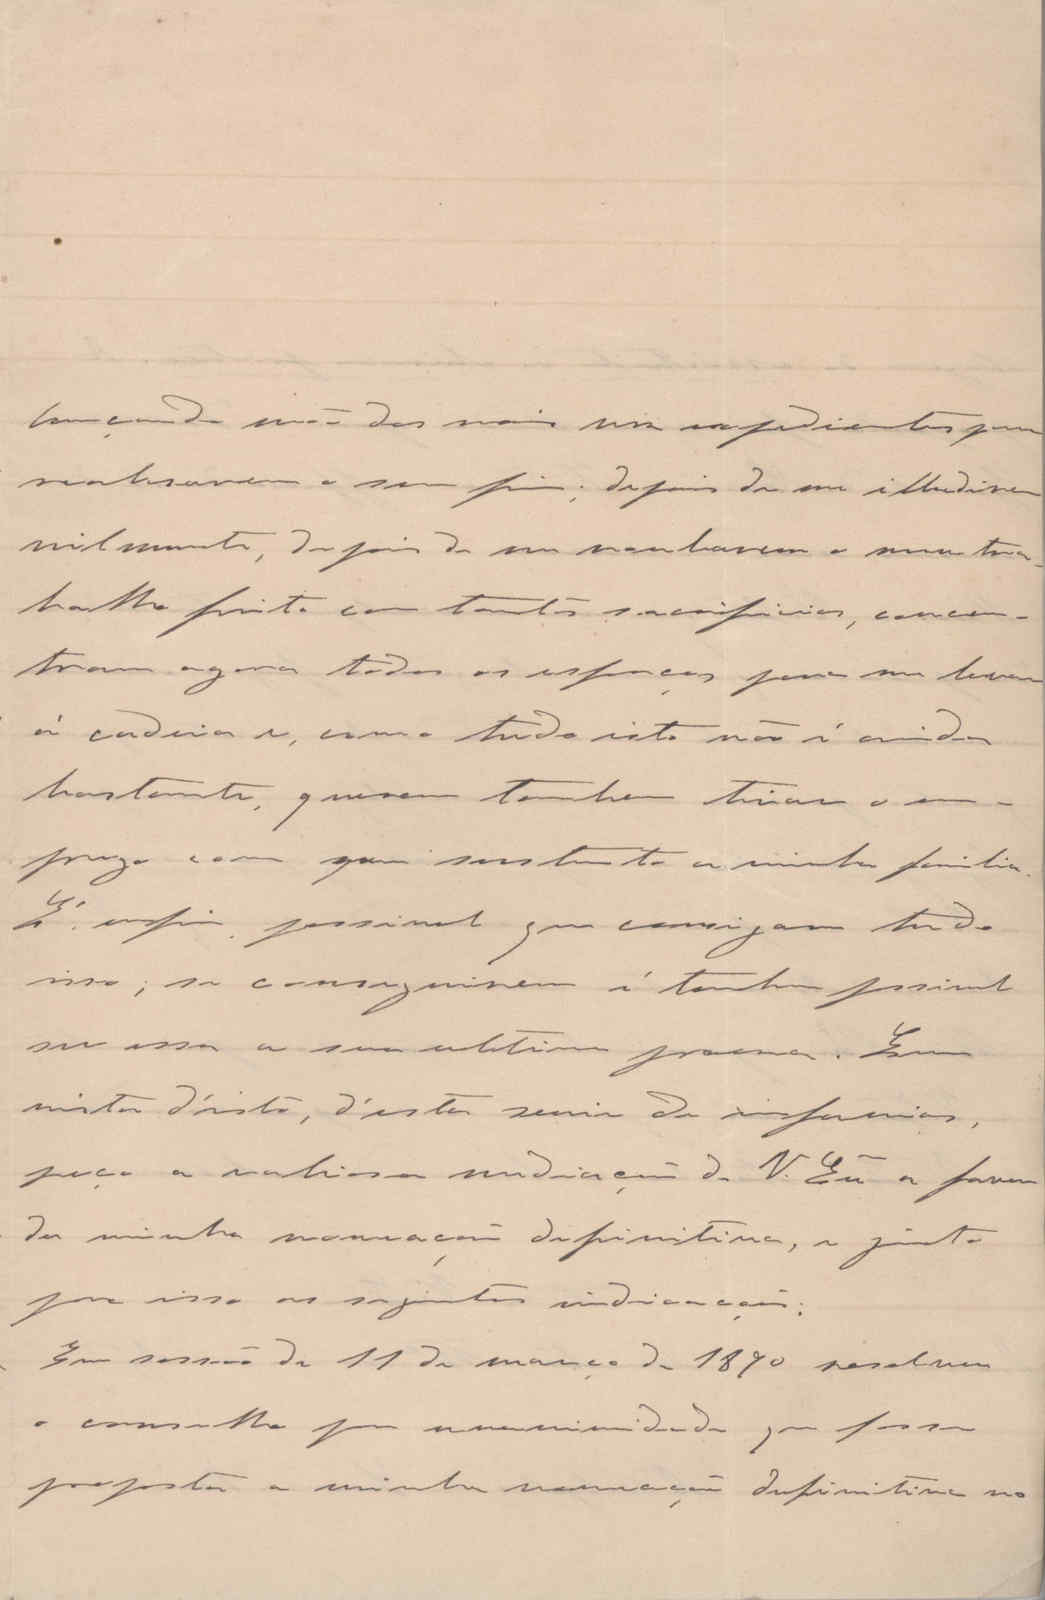 lançando mão dos mais vis expedientes para
realisarem o seu fim; depois de me illudirem
vilmente, depois de me roubarem o meu tra-
balho feito com tantos sacrificios, concen-
tram agora todos os esforços para me levar
á cadeia e, como tudo isto não é ainda
bastante, querem tambem tirar o em-
prego com que sustento a minha familia.
É, enfim, possivel que consigam tudo
isso; se conseguirem é tambem possivel
ser essa a sua ultima proesa. Em
vista d'isto, d'esta serie de infamias,
peço a valiosa mediação de V. Exª a favor
da minha nomeação definitiva, e junto
para isso as seguintes indicações:
Em sessão de 11 de março de 1890 resolveu
o conselho por unanimidade que fosse
proposta a minha nomeação definitiva no